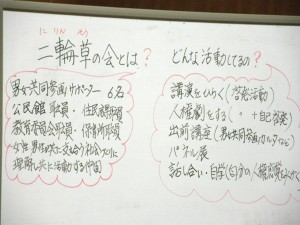 にりんそう
二輪草の会とは?
男女共同参画サポーター 6名
公民館職員・住民課職員
教育委員会職員・保育所職員
女性男性が共に支え合う社会づくりに
理解し共に活動する仲間
どんな活動してるの?
講演をひらく(啓発活動)
人権劇をする(〃 +自己啓発)
出前講座(男女共同参画カルタなど)
パネル展
話し合い・自学(自分の人権意識